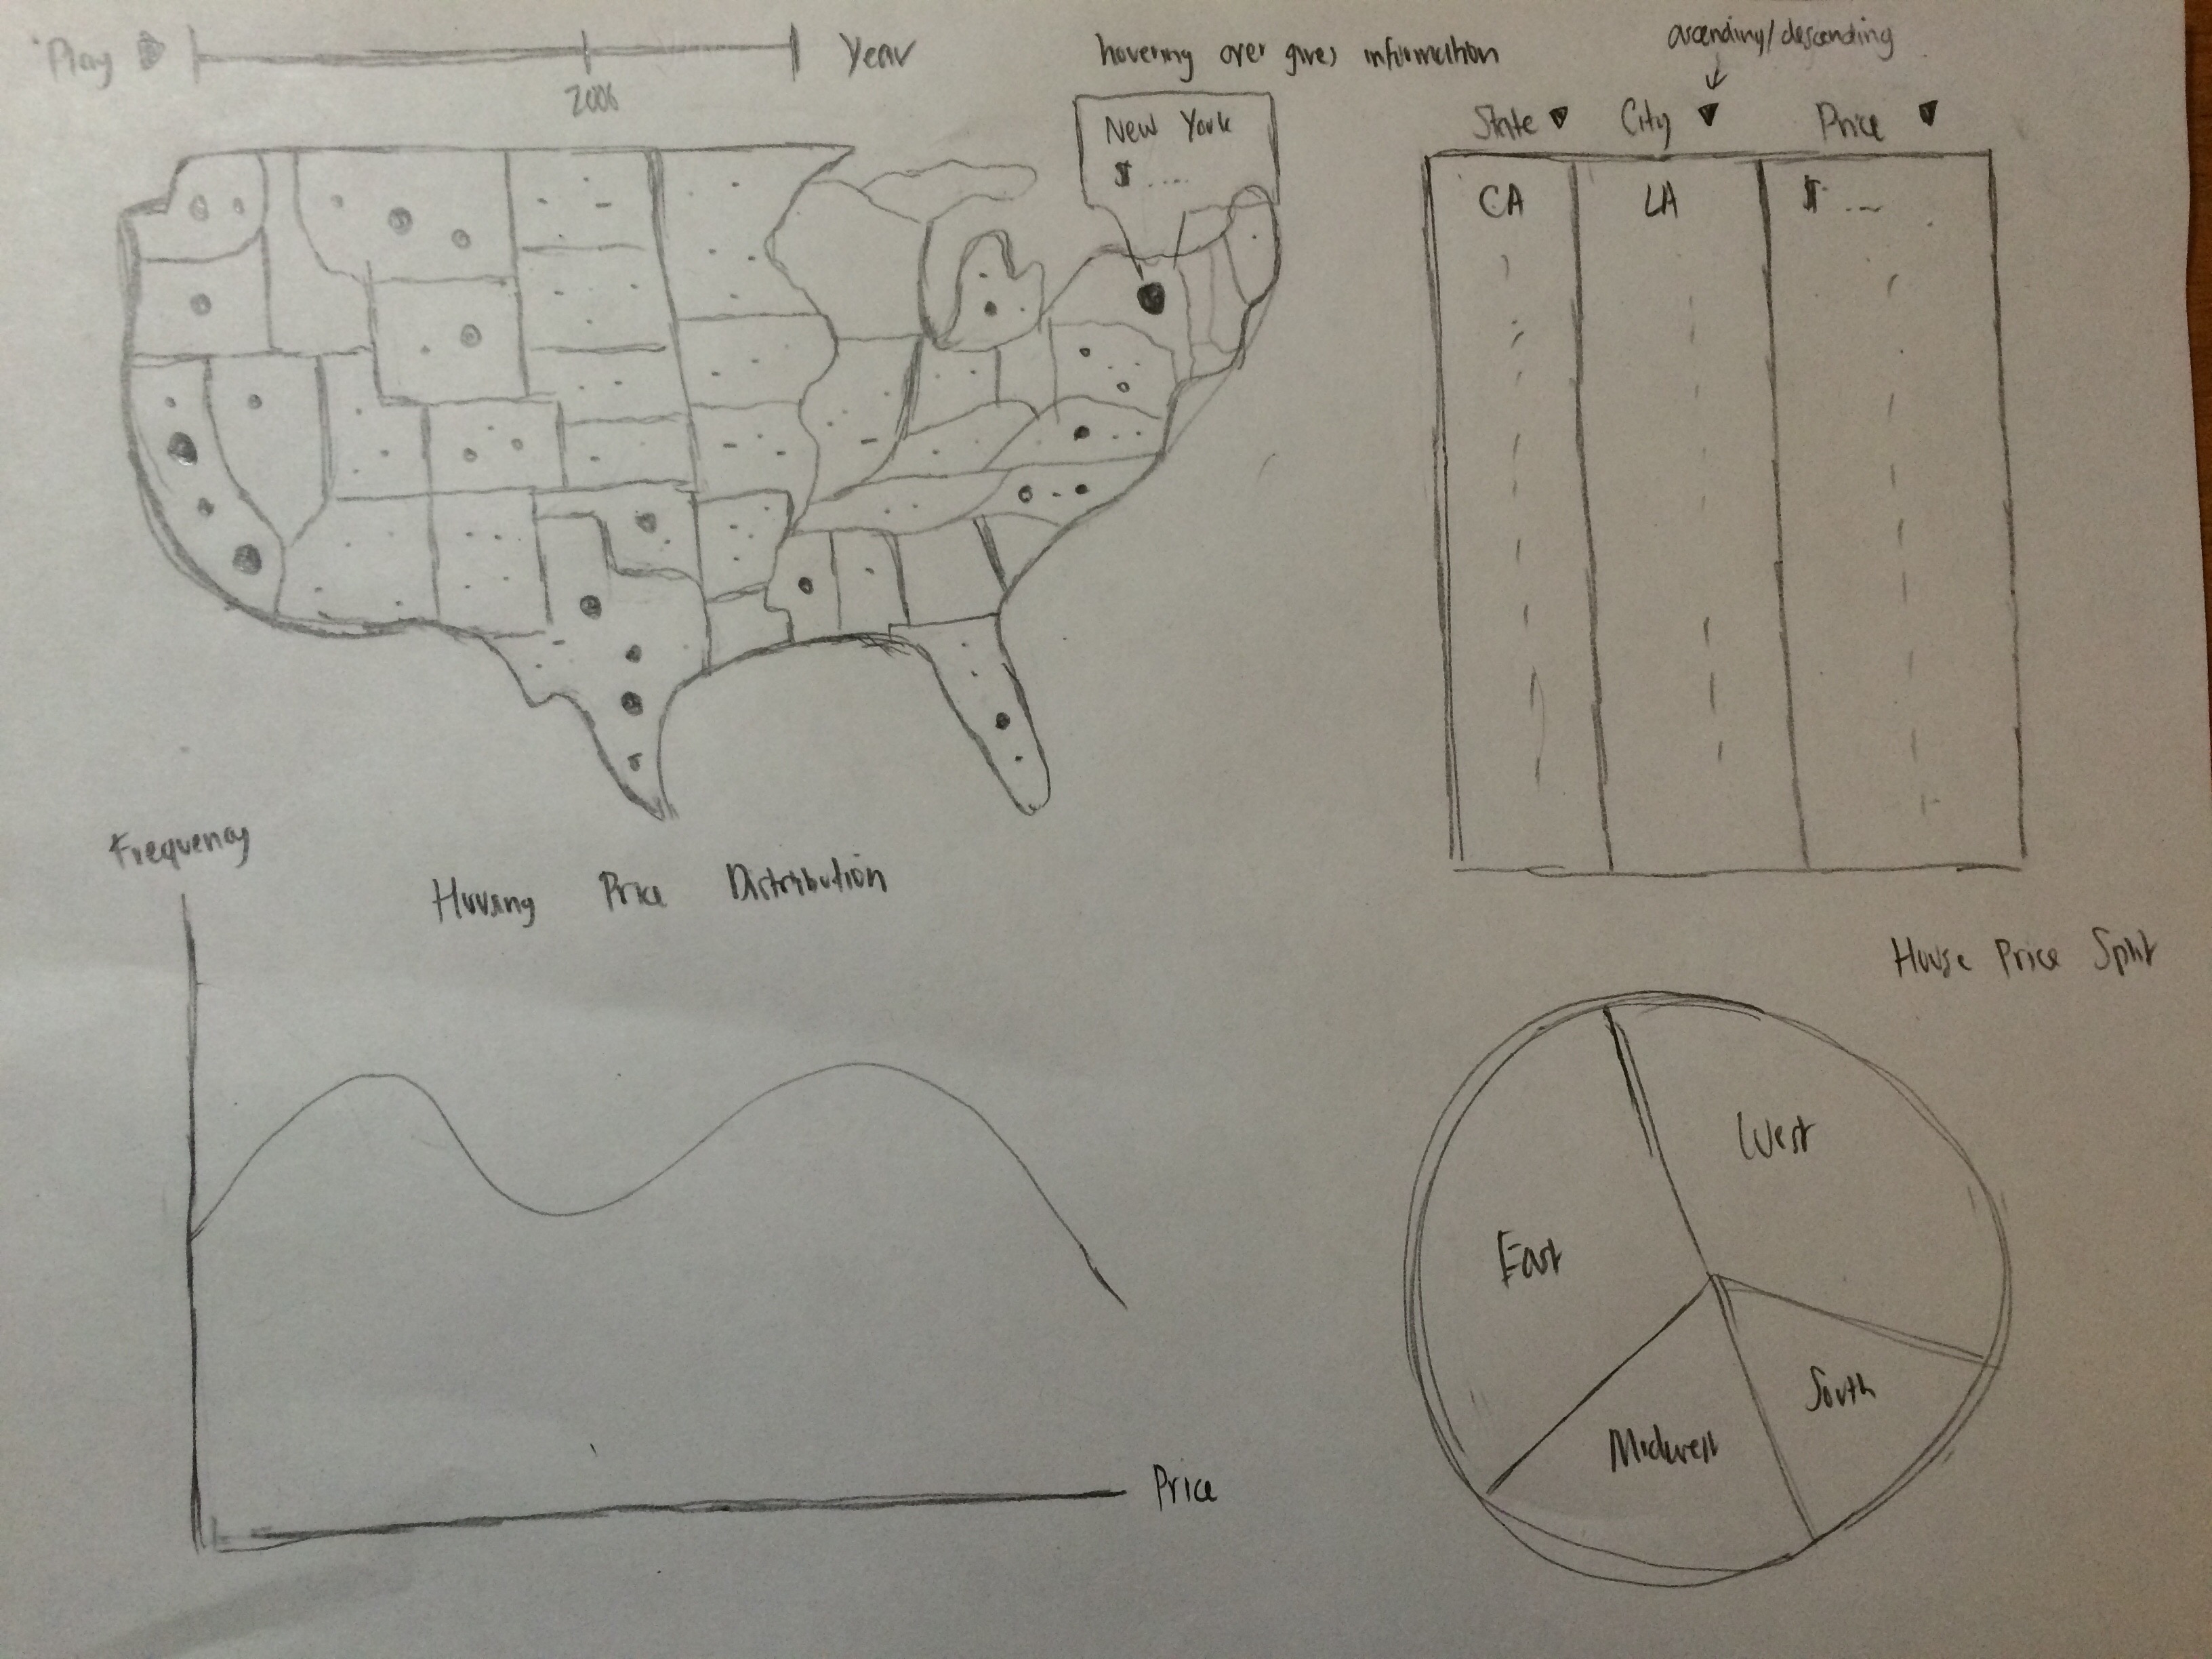 Play
Year
2006
hovering over gives information
New York
$ ....
ascending/descending
State City Price
CA LA $ ...
Frequency
Housing Price Distribution
Price
House Price Split
West
East
South
Midwest